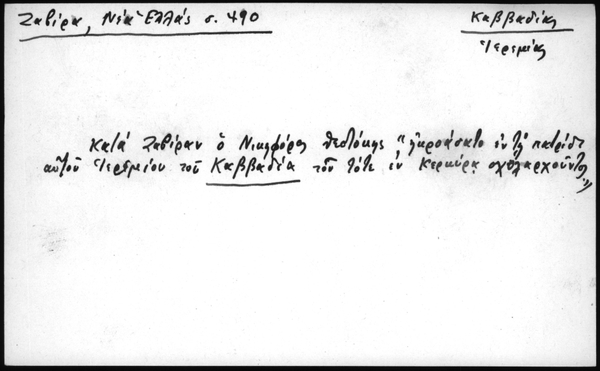 Ζαβίρα, Νέα Ἑλλάς σ. 490
Καββαδίας
Ἱερεμίας
Κατά Ζαβίραν ὁ Νικηφόρος Θεοτόκης "ἠκροάσατο ἐν τῇ πατρίδι
αὐτοῦ Ἱερεμίου τοῦ Καββαδία τοῦ τότε ἐν Κερκύρᾳ σχολαρχοῦντος"